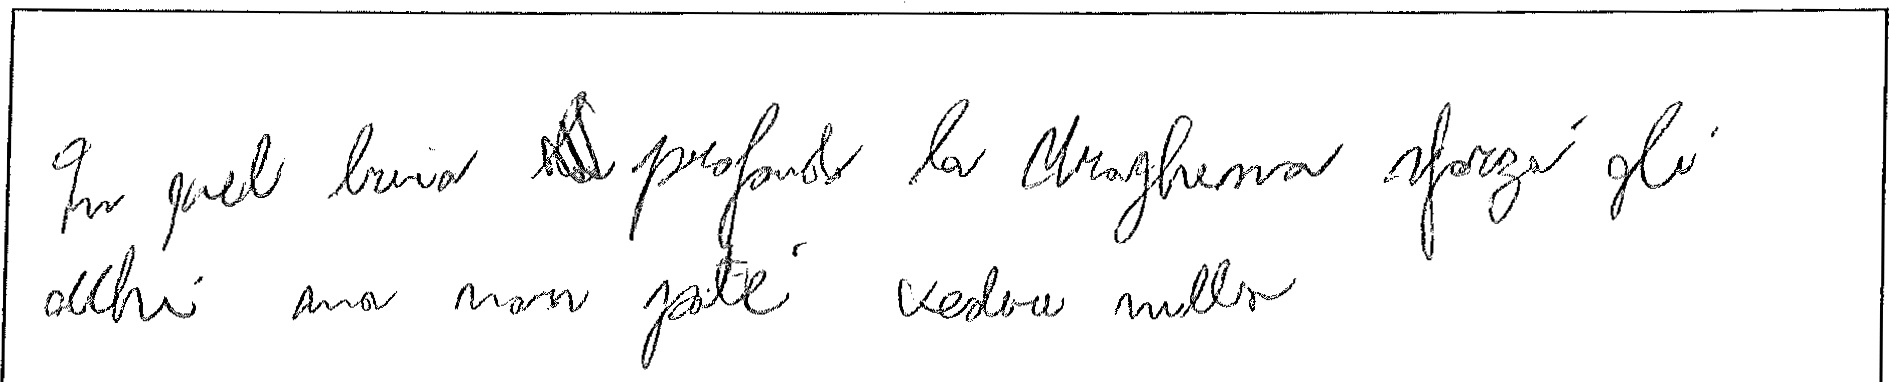 In quel buio profondo la Uraghema sforzò gli
occhi ma non poté vedere nulla